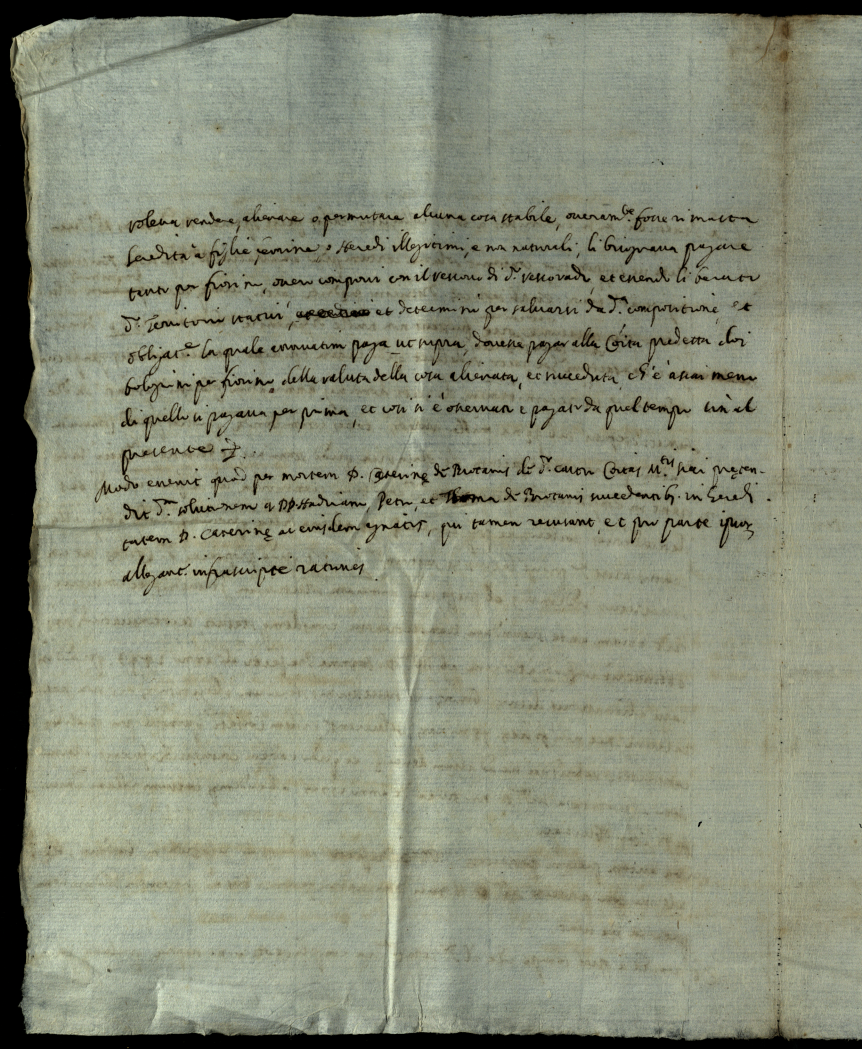 voleva vendere, alienare o permutare alcuna cosa stabile, overam.te fosse rimasta
heredità a figlie femine, o heredi illegitimi, e non naturali, li bisognava pagare
tanto per fiorino, overo componi con il vescovo di d.o vescovado, et essendo li
d.o Territorio et determinò per salvarsi da d.a compositione, et
obligat.e la quale comunitim paga ut supra, dovessi pagar alla Co͠ita predetta doi
bolognini per fiorino della valuta della cosa alienata, et succeduta, ch'è assai meno
di quello si pagava per prima, et così si è osservato e pagato da quel tempo sin al
presente
Modo evenit quod per mortem D. Caterinę de Brocanis de d.o Co͠itas M.tis pręten-
dit d.am solutionem a DD. Hadriano, Petro, et de Brocanis succedentib. in heredi
tatem D. Caterinę ac eiusdem agnatis, qui tamen recusant, et pro parte
allegant. infrascripte rationes